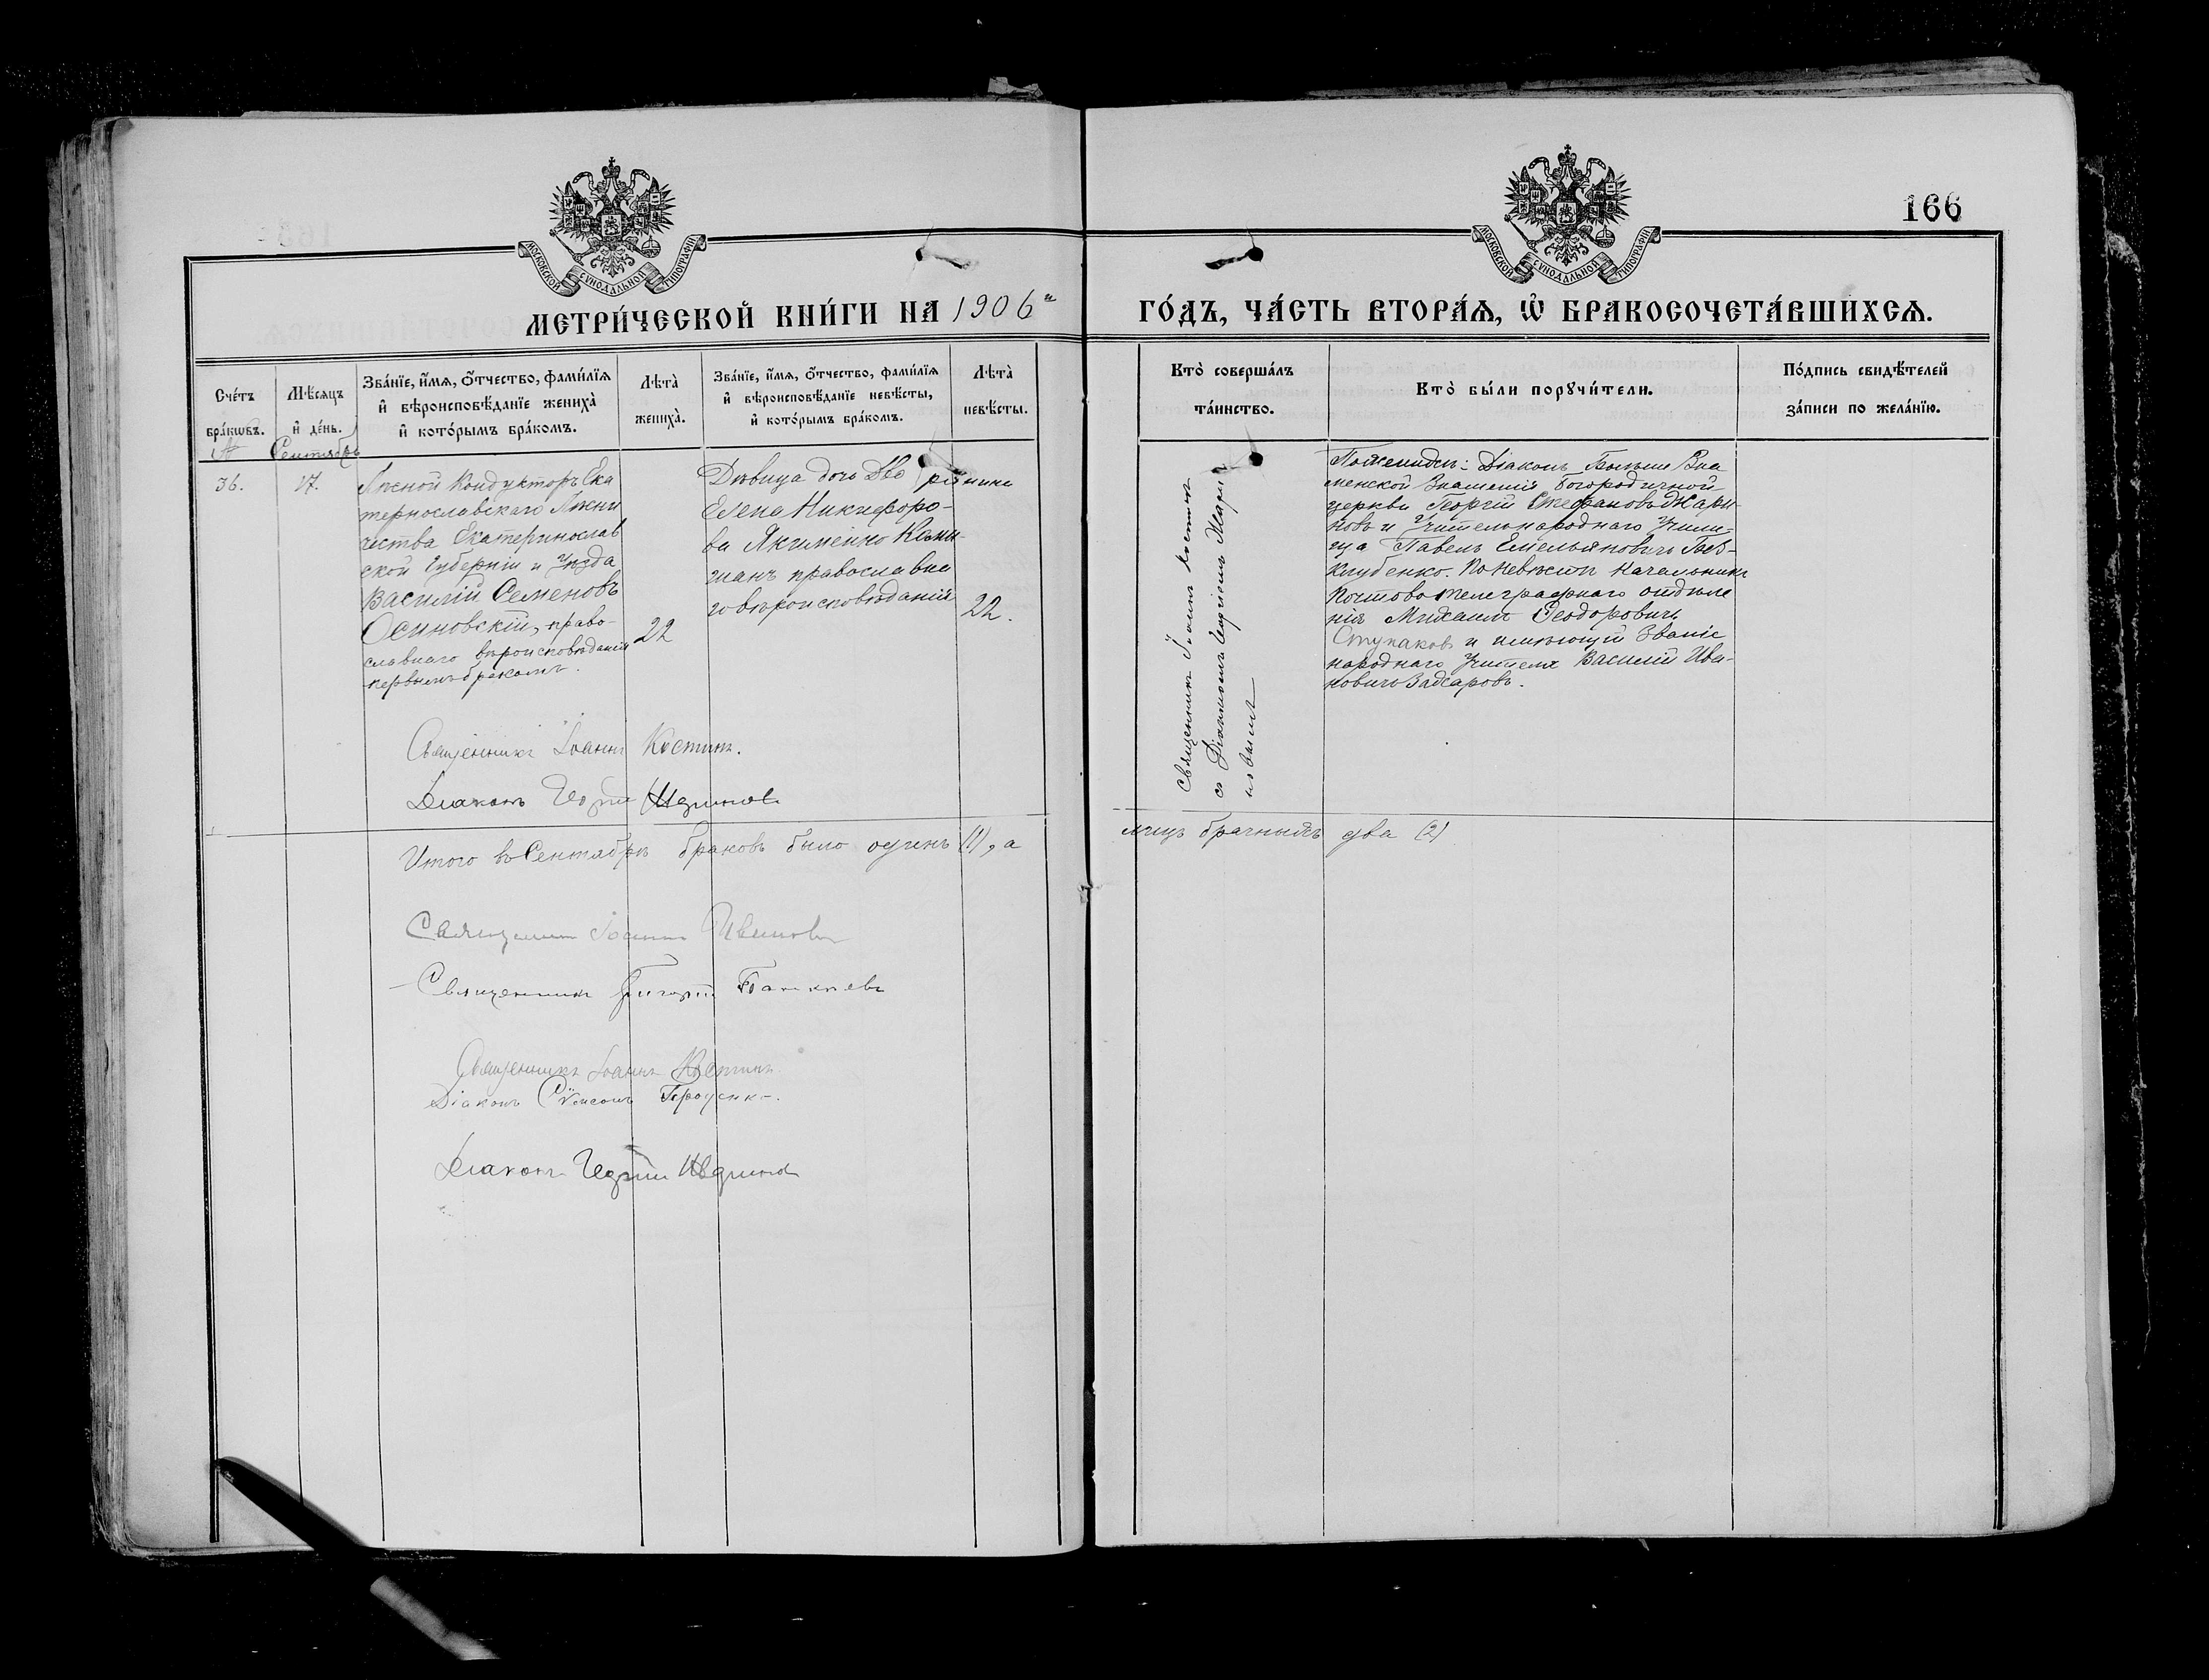 166
МОСКОВСКОЙ СУНОДАЛЬНОЙ ТИПОГРАФІИ
МОСКОВСКОЙ СУНОДАЛЬНОЙ ТИПОГРАФІИ
МЕТРИ́ЧЕСКОЙ КНИ́ГИ НА 1906й
ГО́ДЪ, ЧА́СТЬ ВТОРА́Ѧ, Ѽ БРАКОСОЧЕТА́ВШИХСѦ.
Сче́тъ
бра́кѡвъ.
Мѣ́сѧцъ
и҆ де́нь.
Зва́нїе, и҆́мѧ, о҆́тчество, фами́лїѧ
и҆ вѣроисповѣ́данїе жениха̀
и҆ кото́рымъ бра́комъ.
Лѣта̀
жениха̀.
Зва́нїе, и҆́мѧ, о҆́тчество, фами́лїѧ
и҆ вѣроисповѣ́данїе невѣ́сты,
и҆ кото́рымъ бра́комъ.
Лѣта̀
невѣ́сты.
Кто̀ соверша́лъ
та́инство.
Кто̀ бы́ли порꙋчи́тели.
По́дпись свидѣ́телей
за́писи по жела́нїю.
Сентябрь
36.
17.
Лѣсной Кондукторъ Ека
теринославскаго Лѣсни
чества Екатеринослав
ской Губерніи и Уѣзда
Василій Семеновъ
Осиновскій, право-
славнаго вѣроисповѣданія
первымъ бракомъ.
22
Дѣвица дочь Дворянина
Елена Никифоро-
ва Якименко
православна
го вѣроисповѣданія
22.
Священникъ Іоаннъ Костинъ
съ Діакономъ Георгіемъ
По женихѣ: Діаконъ
Знаменія Богородичной
церкви Георгій Стефановъ
и Учитель народнаго Учили-
ща Павелъ Емельяновичъ
По Невѣстѣ Начальникъ
Почтово телеграфнаго отдѣле
нія Михаилъ Ѳеодоровичъ
Ступаковъ и имѣющій Званіе
народнаго Учителя Василій Ива-
новичъ
Священникъ Іоаннъ Костинъ.
Діаконъ Георгій
Итого въ Сентябрѣ браковъ было одинъ (1), а
лицъ брачныхъ два (2)
Священникъ Іоаннъ Ивановъ
Священникъ Григорій
Священникъ Іоаннъ Костинъ
Діаконъ Сѵмеонъ Проценко.
Діаконъ Георгій